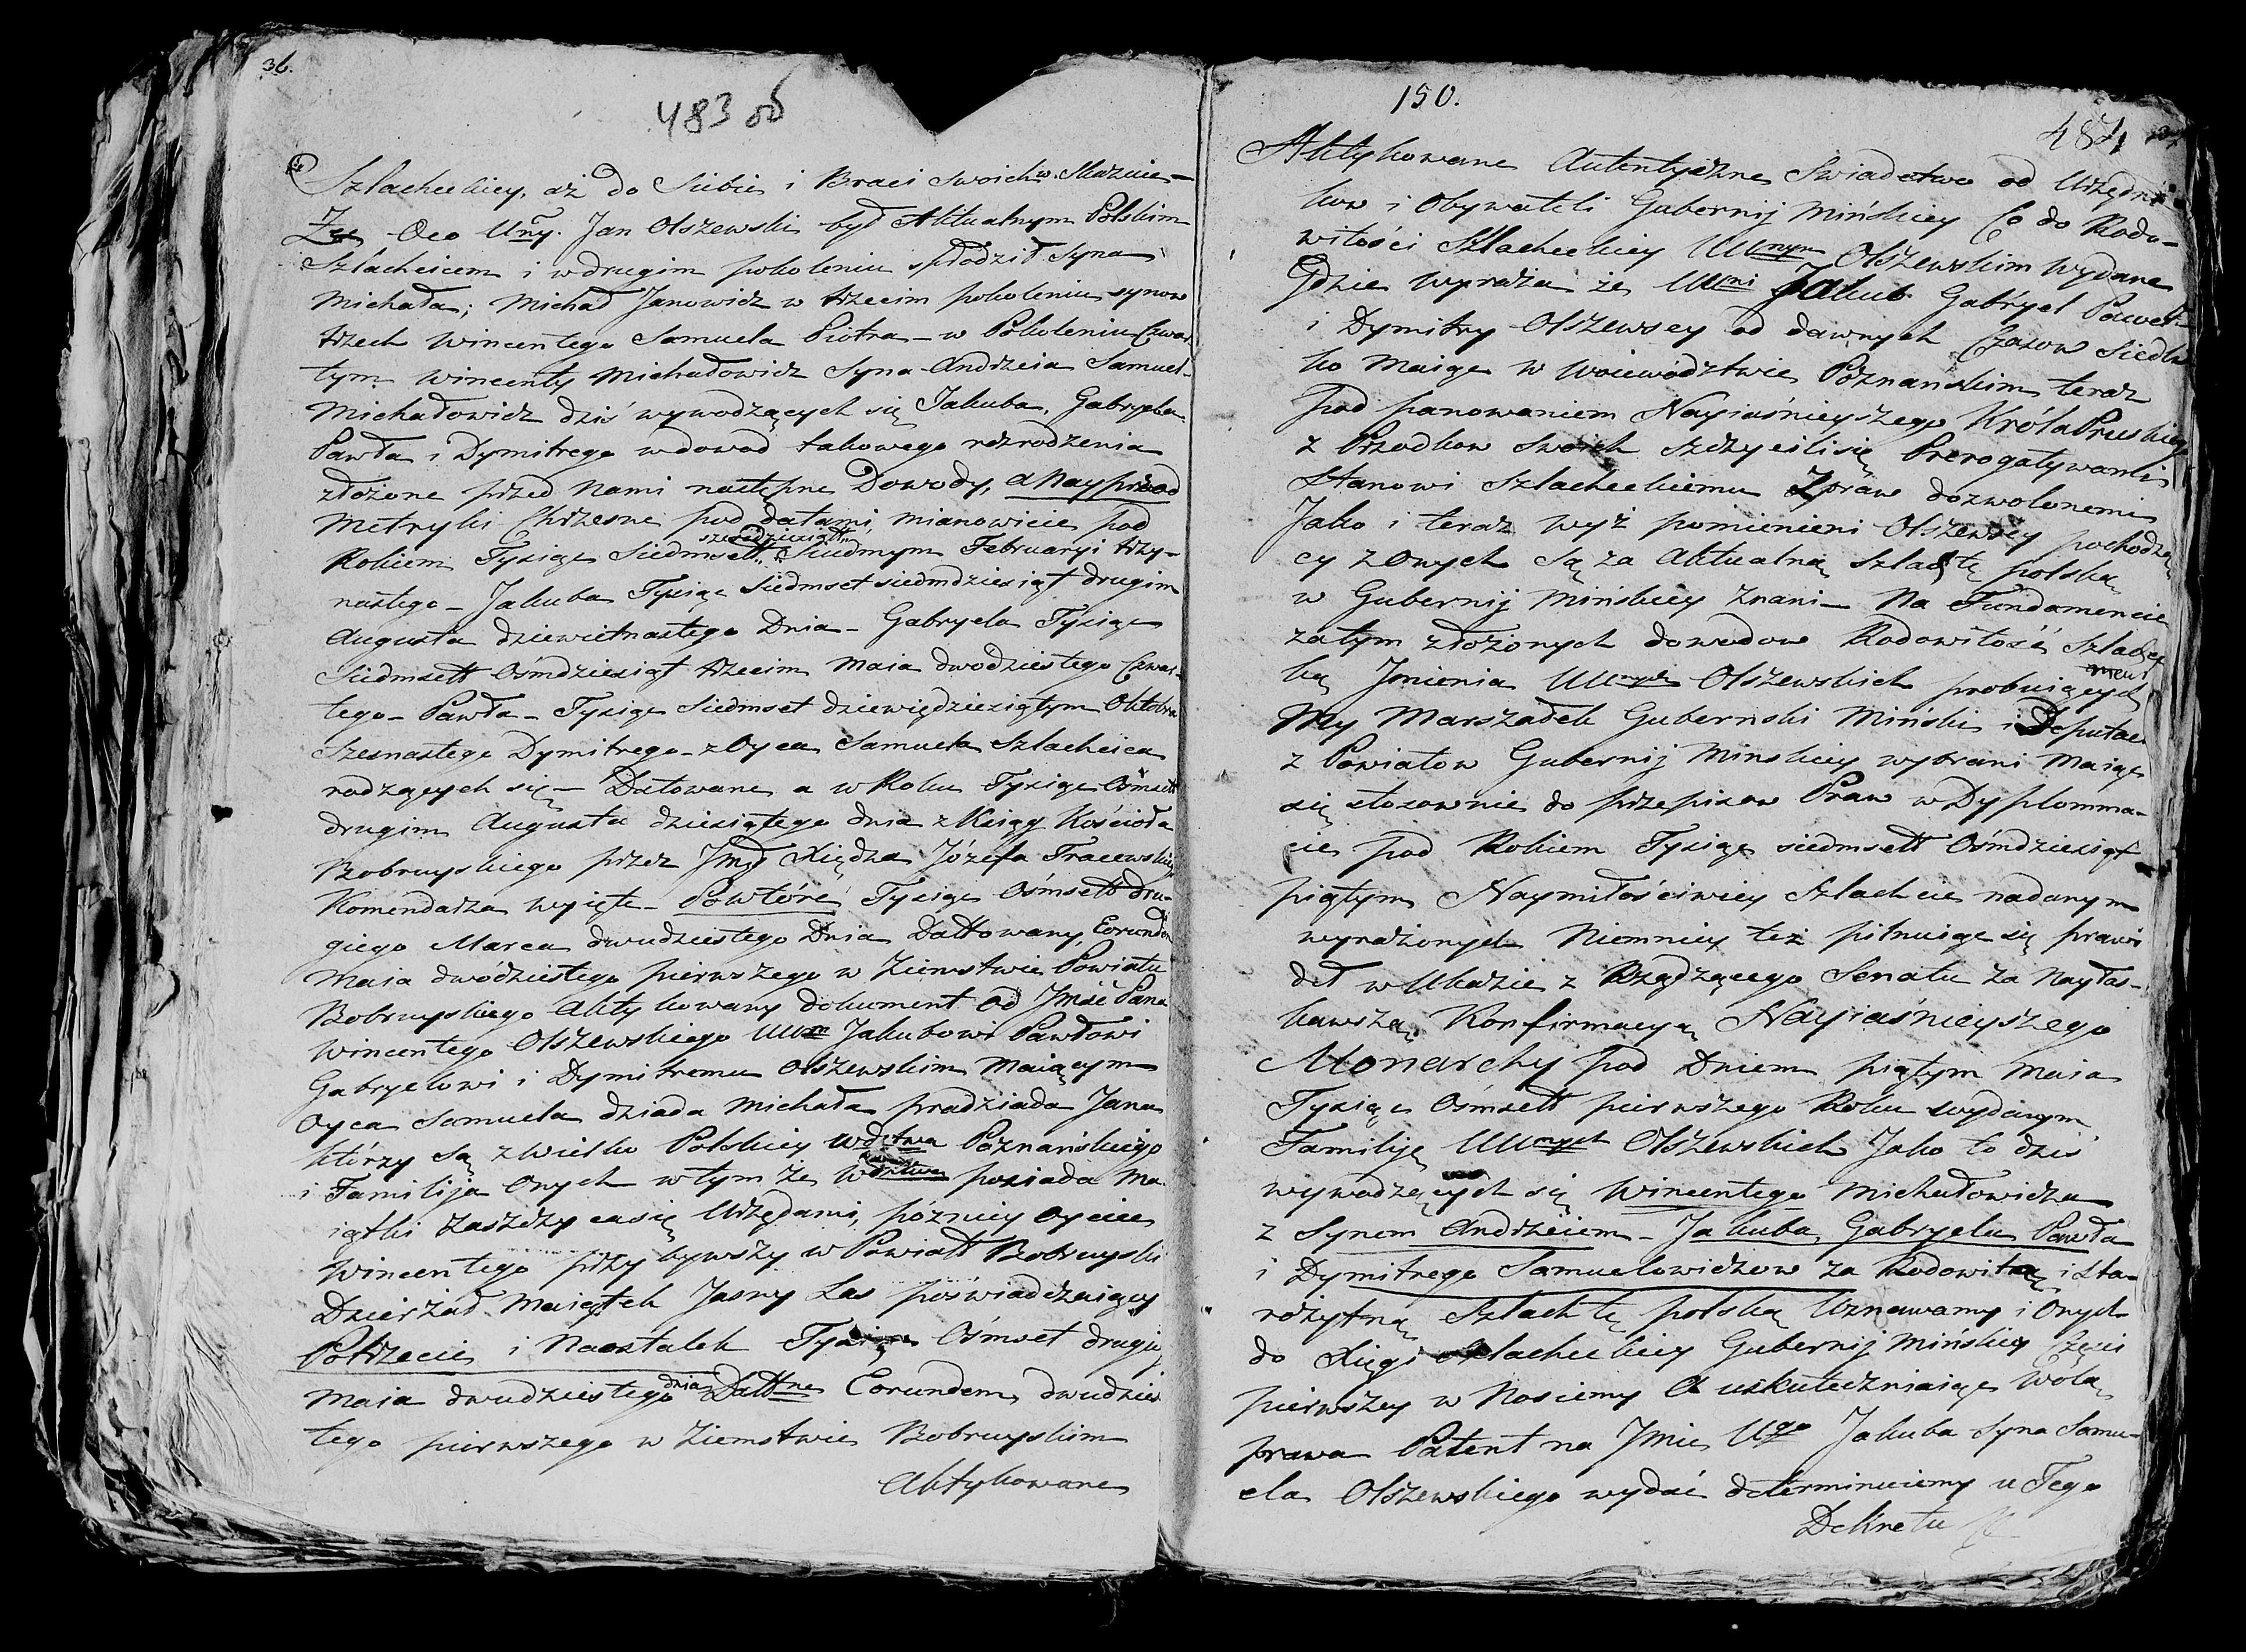 36.
483 об
Szlacheckiey, aż do Siebie i Braci swoich w
Że Oco Uny. Jan Olszewski był Aktualnym Polskim
Szlachcicem i w drugim pokoleniu spłodził syna
Michała; Michał Janowicz w trzecim pokoleniu synow
trzech Wincentego Samuela Piotra – w Pokoleniu Czwar-
tym Wincenty Michałowicz Syna Andrzeia Samuel
Michałowicz dziś wywodzących się Jakuba, Gabryela
Pawła i Dymitrego w dowod takowego rozrodzenia
złożone przed Nami następne Dowody, a Nayprzod
Metryki Chrzesne pod datami, mianowicie pod
Rokiem Tysiąc Siedmsett sześdziesiątt Siudmym Februaryi trzy-
nastego – Jakuba Tysiąc Siedmset siedmdziesiąt drugim
Augusta dziewietnastego Dnia – Gabryela Tysiąc
Siedmsett Ośmdziesiąt trzecim Maia dwodziestego Czwar-
tego – Pawła – Tysiąc Siedmset dziewiędziesiątym Oktobra
Szesnastego Dymitrego – z Oyca Samuela Szlachcica
rodzących się – Datowane a w Roku Tysiąc Ośmsett
drugim Augusta dziesiątego dnia z Księgi Kościoła
Bobruyskiego przez Jmć Xiędza Józefa Tracewskiego
Komendarza wyięte – Powtóre Tysiąc Ośmsett dru-
giego Marca dwudziestego Dnia Dattowany, Eorundem
Maia dwódziestego pierwszego w Ziemstwie Powiatu
Bobruyskiego Aktykowany dokument od Jmść Pana
Wincentego Olszewskiego UUm Jakubowi Pawłowi
Gabryelowi i Dymitremu Olszewskim Maiącym
Oyca Samuela dziada Michała pradziada Jana
którzy są z Wielko Polskiey Wdztwa Poznańskiego
i Familija Onych w tym że Wdztwie posiada Ma-
iątki zaszczyca się Urzędami, pózniey Oyciec
Wincentego przybywszy w Powiatt Bobruyski
Dzierżał Maiątek Jasny Las poświadczaiący
Potrzecie i Naostatek Tysiąc Ośmset drugiey
Maia dwudziestego dnia Dattne Eorundem, dwudzies-
tego pierwszego w Ziemstwie Bobruyskim
Aktykowane
150.
484
Aktykowane Autentyczne Swiadectwo od Urzędni-
kow i Obywateli Gubernij Mińskiey Co do Rodo-
witości Szlacheckiey UUnym Olszewskim wydane
Gdzie wyraża że UUni Jakub Gabryel Paweł
i Dymitry Olszewscy od dawnych Czasow Siedls-
ko Maiąc w Woiewództwie Poznanskim teraz
pod panowaniem Nayiaśnieyszego Króla Pruskiego
z Przodkow swoich szczycili się Prerogatywami
Stanowi Szlacheckiemu z praw dozwolonemi
Jako i teraz wyż pomienieni Olszewscy pochodzą-
cy z Onych są za Aktualną szlachtę polską
w Gubernij Mińskiey Znani – Na Fundamencie
zatym złożonych dowodow Rodowitość Szlachec-
ką Jmienia UUnych Olszewskich probuiących
My Marszałek Gubernski Miński i Deputaci
z Powiatow Gubernij Minskiey wybrani Maiąc
się stosownie do przepisow Praw w Dyplomma-
cie pod Rokiem Tysiąc siedmsett Ośmdziesiąt
piątym Naymiłościwiey Szlachcie nadanym
wyrażonych Niemniey też pilnuiąc się prawi-
deł w Ukazie z Rządzącego Senatu za Nayłas-
kawszą Konfirmacyą Nayiaśnieyszego
Monarchy pod Dniem piątym Maia
Tysiąc Ośmsett pierwszego Roku wydanym
Familiję UUnych Olszewskich Jako to dziś
wywodzących się Wincentego Michałowicza
z Synem Andrzeiem – Jakuba, Gabryela Pawła
i Dymitrego Samuelowiczow za Rodowitą i Sta-
rożytną Szlachtę polską Uznawamy i Onych
do Xięgi Szlacheckiey Gubernij Mińskiey Części
pierwszey w Nosiemy A uskuteczniaiąc Wolą
prawa Patent na Jmie Ugo Jakuba Syna Samu-
ela Olszewskiego wydać determinuiemy u Tego
Dekretu